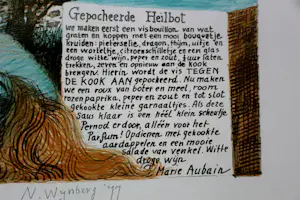 Gepocheerde Heilbot
we maken eerst een visbouillon van wat
graten en koppen met een mooi bouquetje
kruiden: pieterselie, dragon, thijm, uitje en
een worteltje, citroenschilletje en een glas
droge witte wijn, peper en zout, ½ uur laten
trekken, zeven en opnieuw aan de kook
brengen. Hierin wordt de vis TEGEN
DE KOOK AAN gepocheerd. Nu maken
we een roux van boter en meel, room
rozenpaprika, peper en zout en tot slot
gekookte kleine garnaaltjes. Als deze
saus klaar is een héél klein scheutje
Pernod er door, alléén voor het
Parfum! Opdienen met gekookte
aardappelen en een mooie
salade van venkel. Witte
droge wijn
Marie Aubain
N. Wijnberg '77